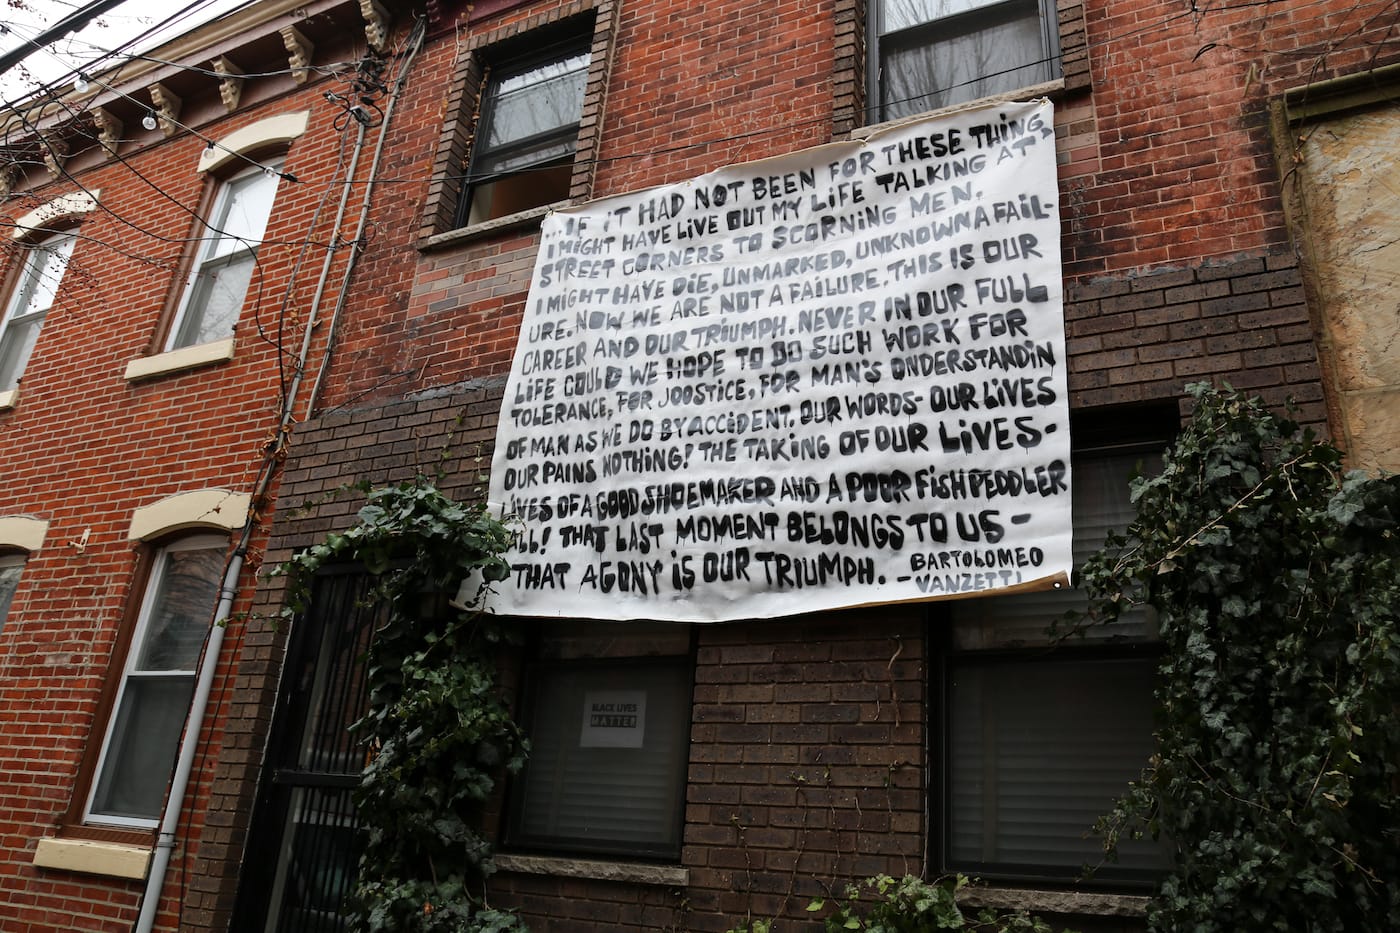 ...IF IT HAD NOT BEEN FOR THESE THING,
I MIGHT HAVE LIVE OUT MY LIFE TALKING AT
STREET CORNERS TO SCORNING MEN.
I MIGHT HAVE DIE, UNMARKED, UNKNOWN A FAIL-
URE. NOW WE ARE NOT A FAILURE. THIS IS OUR
CAREER AND OUR TRIUMPH. NEVER IN OUR FULL
LIFE COULD WE HOPE TO DO SUCH WORK FOR
TOLERANCE, FOR JOOSTICE, FOR MAN'S ONDERSTANDIN
OF MAN AS WE DO BY ACCIDENT. OUR WORDS- OUR LIVES
OUR PAINS NOTHING! THE TAKING OF OUR LIVES-
LIVES OF A GOOD SHOEMAKER AND A POOR FISH PEDDLER
ALL! THAT LAST MOMENT BELONGS TO US-
THAT AGONY IS OUR TRIUMPH. - BARTOLOMEO
VANZETTI
BLACK LIVES
MATTER